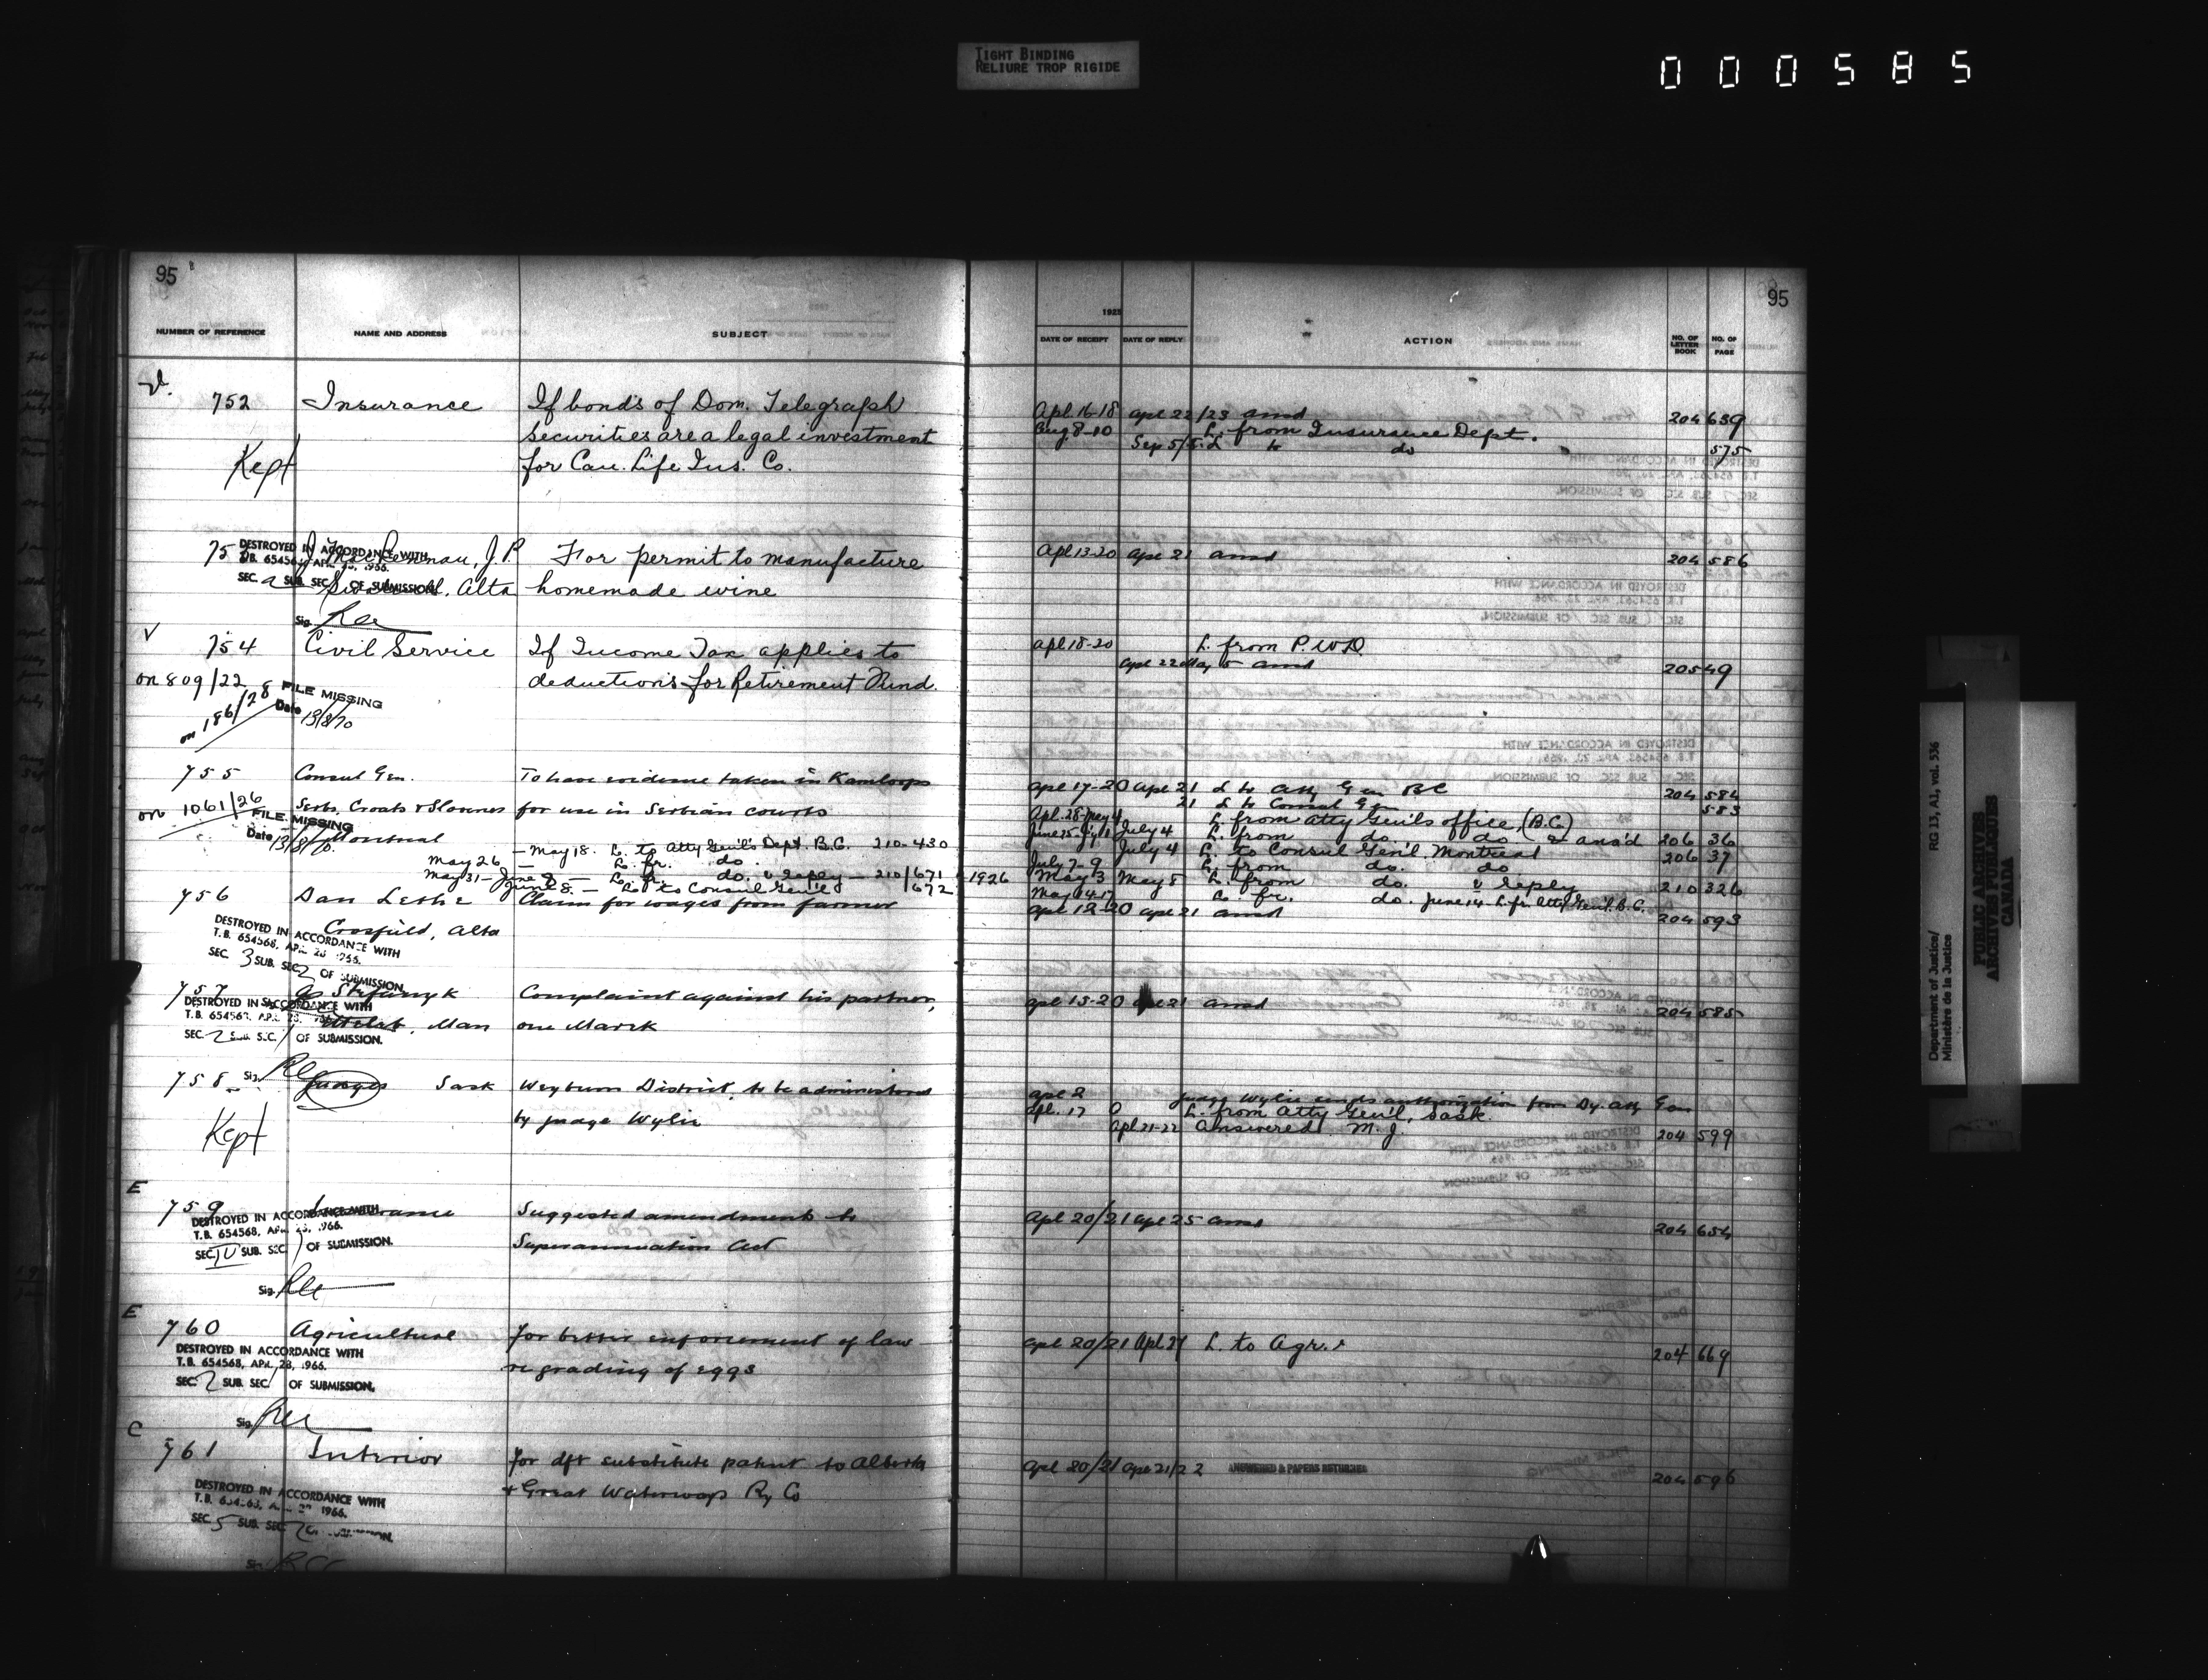 TIGHT BINDING
RELIURE TROP RIGIDE
000585
95
NUMBER OF REFERENCE NAME AND ADDRESS SUBJECT
752 Insurance If bonds of Dom. Telegraph
securities are a legal investment
Kept for Can. Life Ins. Co.
75 J. P. For permit to manufacture
DESTROYED IN ACCORDANCE WITH
SEC. a SUB. SEC. OF SUBMISSION
Alta homemade wine
Sig.
V
754 Civil Service If Income Tax applies to
on 809/22 deductions for Retirement Fund.
on 186/28 FILE MISSING
Date 13/8/70
755 Consul Gen. To have evidence taken in Kamloops
on 1061/26 Serbs, Croats & Slovenes for use in Serbian courts
FILE MISSING
Date 13/8/70 Montreal
— May 18. L. to Atty Gen'l's Dept. B.C. 210-430
May 26 — L. fr. do.
May 31 — June 8 — L. fr. do. & reply — 210/671
June 8. — L. to Consul Gen'l 672
756 Dan Claim for wages from farmer
Crossfield, Alta
DESTROYED IN ACCORDANCE WITH
T.B. 654568, APR. 28 1966.
SEC. 3 SUB. SEC. 2 OF SUBMISSION
757 Complaint against his partner,
DESTROYED IN ACCORDANCE WITH
T.B. 654568, APR. 28, 1966
Man one
SEC. 2 SUB. SEC. 1 OF SUBMISSION.
758 Sig. Judges Sask Weyburn District, to be administered
Kept by Judge Wylie
E
759 Insurance Suggested amendment to
DESTROYED IN ACCORDANCE WITH
T.B. 654568, APR. 28, 1966.
SEC. IV SUB. SEC. 1 OF SUBMISSION.
Superannuation Act
Sig.
E
760 Agriculture For better enforcement of law
DESTROYED IN ACCORDANCE WITH
T.B. 654568, APR. 28, 1966.
re grading of eggs
SEC. 2 SUB. SEC. 1 OF SUBMISSION.
Sig.
C
761 Interior For dft substitute patent to Alberta
& Great Waterways Ry Co
DESTROYED IN ACCORDANCE WITH
1966.
SEC. 5 SUB. SEC. 2
Sig.
95
1925
DATE OF RECEIPT DATE OF REPLY ACTION NO. OF LETTER BOOK NO. OF PAGE
Apl. 16-18 Apl 22/23 ansd 204 639
Aug. 8-10 L. from Insurance Dept.
Sep 5/5 L to do 575
Apl 13-20 Apl 21 ansd 204 586
Apl 18-20 L. from P.W.D.
Apl 22 May 5 ansd 205 49
Apl 17-20 Apl 21 L to Atty Gen BC 204 584
21 L to Consul Gen 583
Apl. 28-May 4 L. from Atty Gen'l's office, (B.C.)
June 25-July 1 July 4 L. from do do & ans'd 206 36
July 4 L. to Consul Gen'l Montreal 206 37
July 7-9 L. from do. do
1926 May 3 May 8 L. from do. & reply 210 326
May 14-17 L. fr. do. June 14 - L. fr. Atty Gen'l. B.C.
Apl 18-20 Apl 21 ansd 204 593
Apl 15-20 Apl 21 ansd 204 585
Apl 2 Judge Wylie sends authorization from Dy. Atty Gen
Apl. 17 L. from Atty Gen'l, Sask.
Apl 21-22 Answered M. J. 204 599
Apl 20/21 Apl 25 ansd 204 654
Apl 20/21 Apl 27 L. to Agr. 204 669
Apl 20/21 Apl 21/22 ANSWERED & PAPERS RETURNED 204 596
Department of Justice/
Ministère de la Justice
RG 13, A1, vol. 536
PUBLIC ARCHIVES
ARCHIVES PUBLIQUES
CANADA